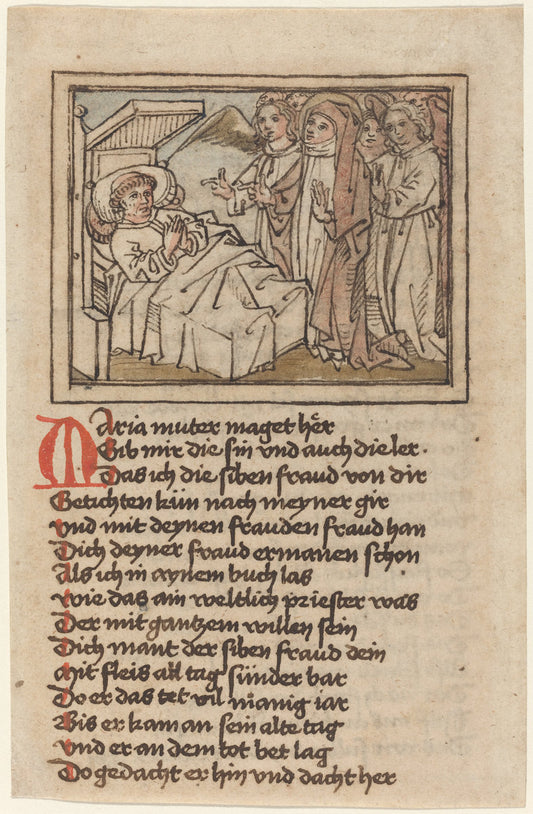 Maria muter maget hër
Gib mir die sin vnd auch die ler.
Das ich die siben fraud von dir
Getichten kün nach meyner gir
vnd mit deynen frauden fraud han
Dich deyner fraud ermanen schon
Als ich in aynem buch las
wie das ain weltlich priester was
Der mit gantzem willen sein
Dich mant der siben fraud dein
mit fleis all tag sunder bar
Do er das tet vil manig iar
Bis er kam an sein alte tag
vnd er an dem tot bet lag
Do gedacht er hin vnd dacht her